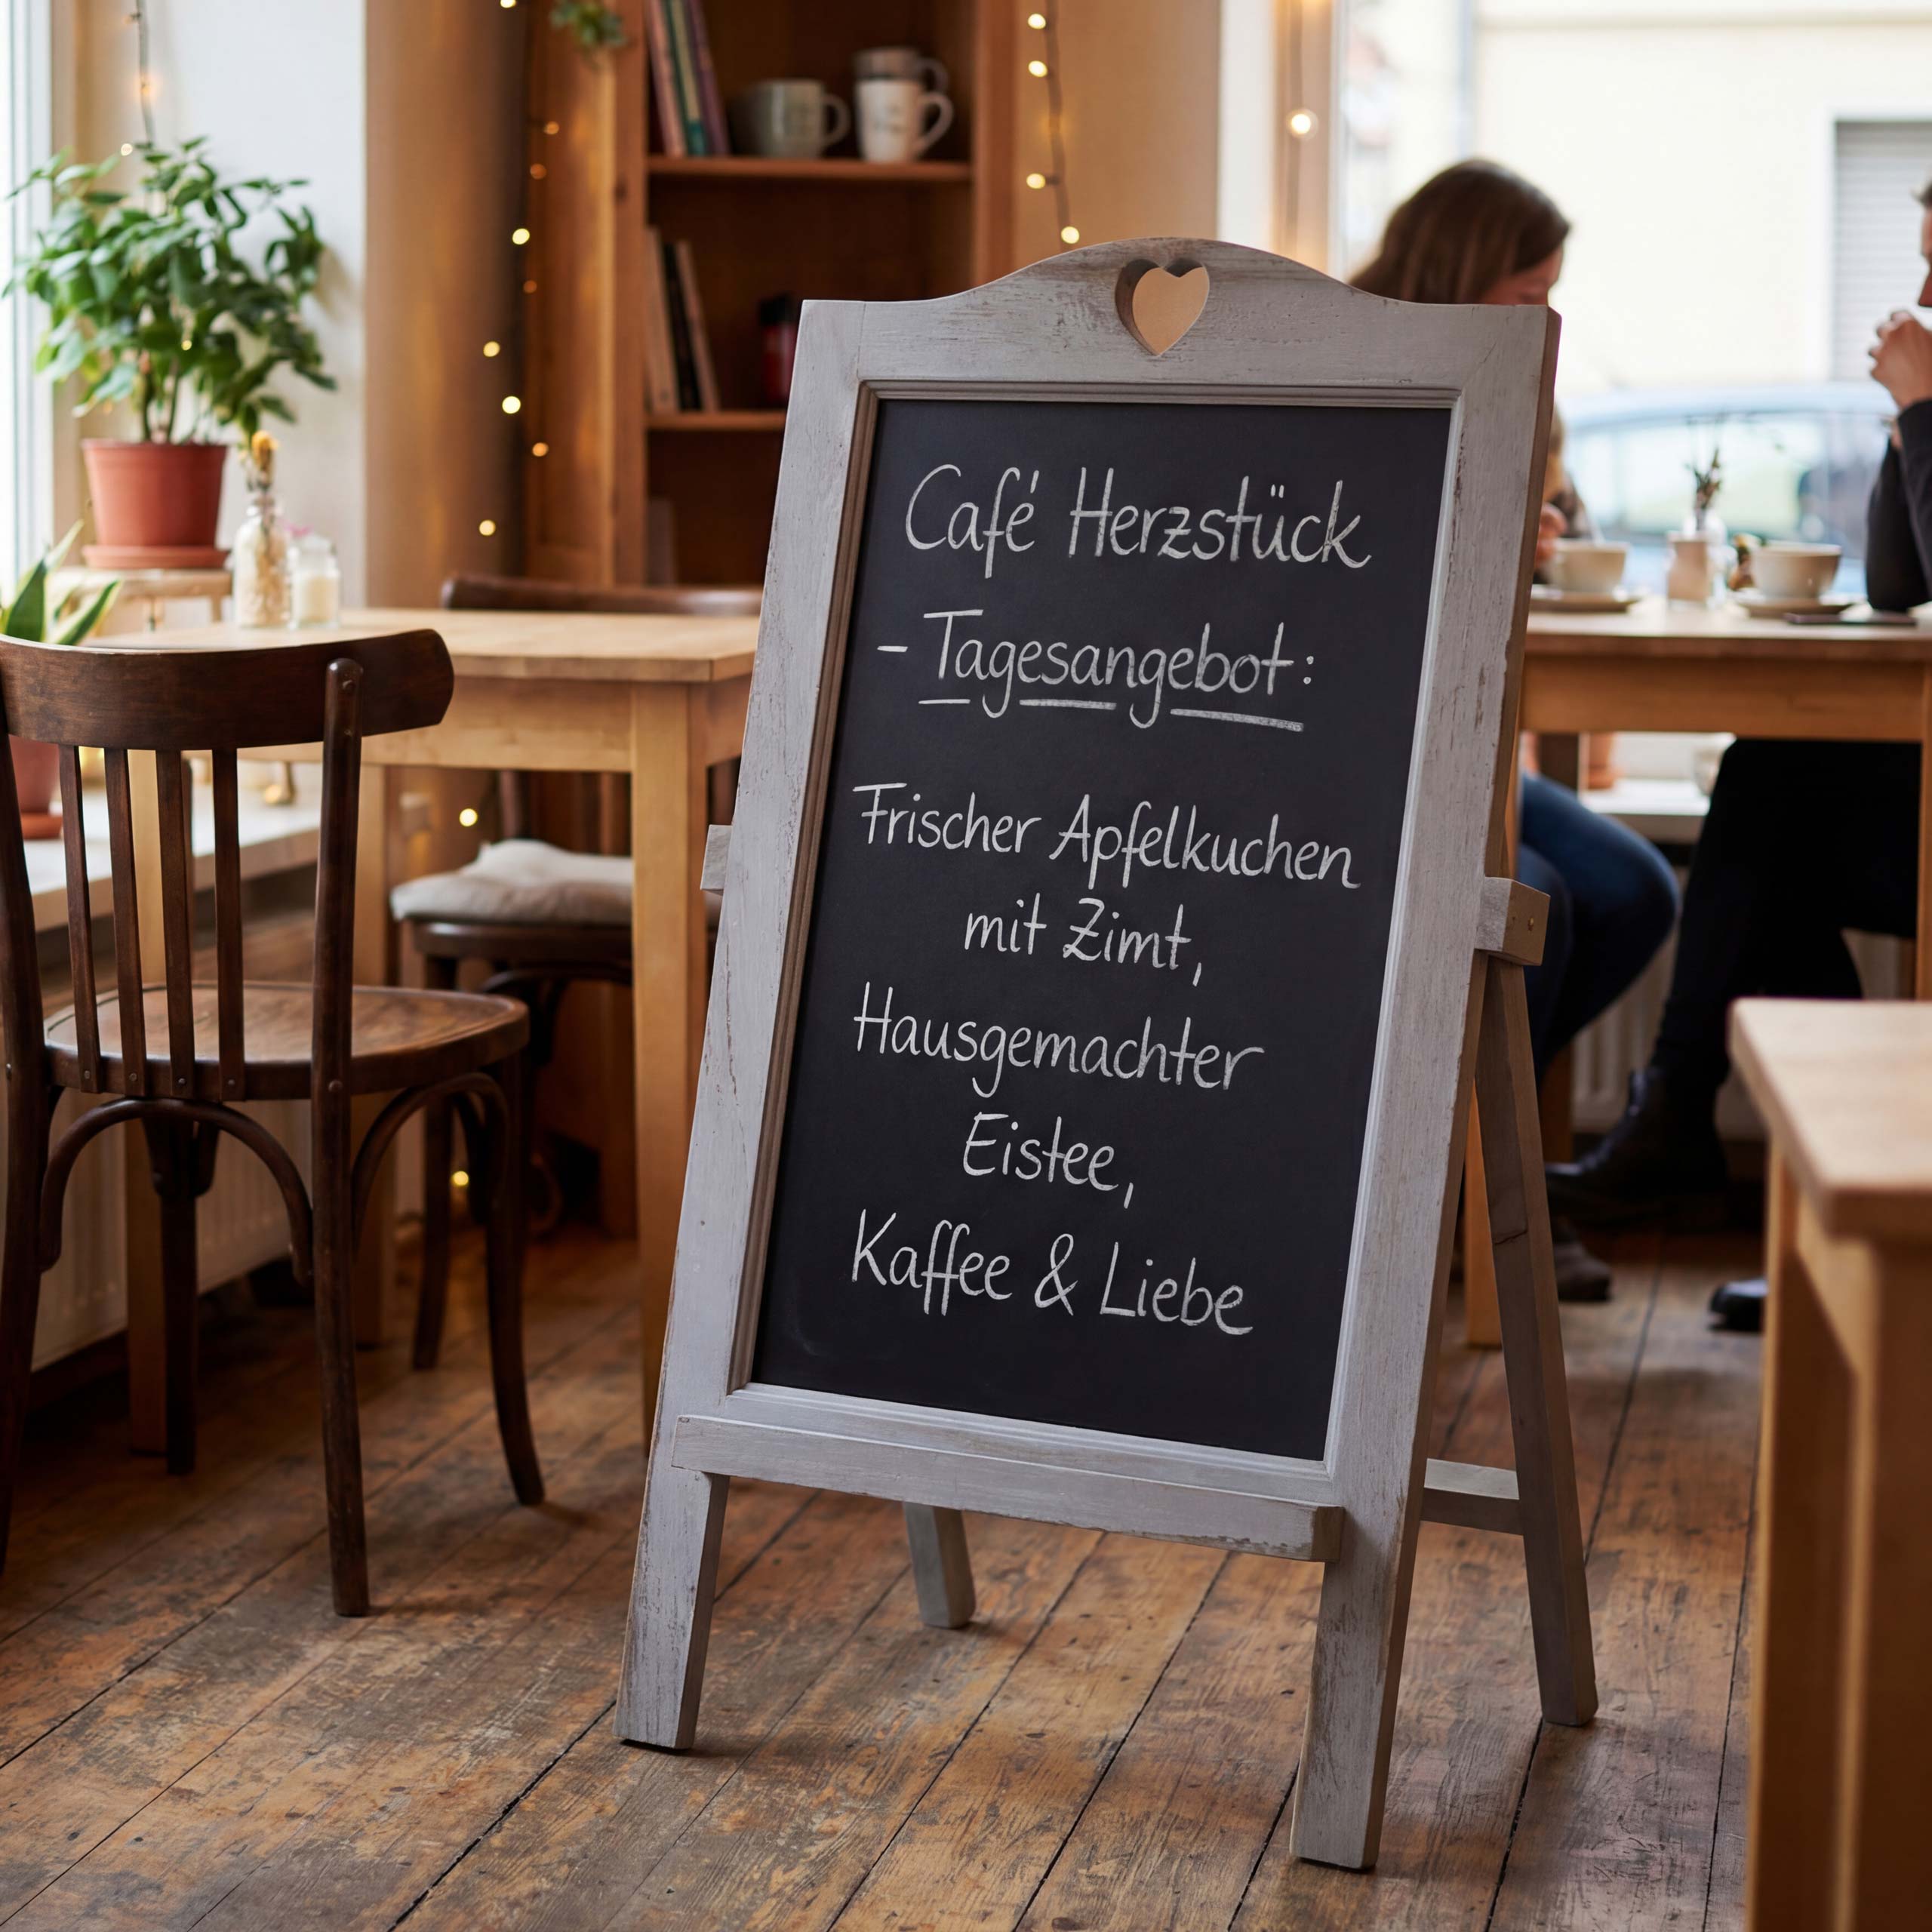 Café Herzstück
- Tagesangebot:
Frischer Apfelkuchen
mit Zimt,
Hausgemachter
Eistee,
Kaffee & Liebe